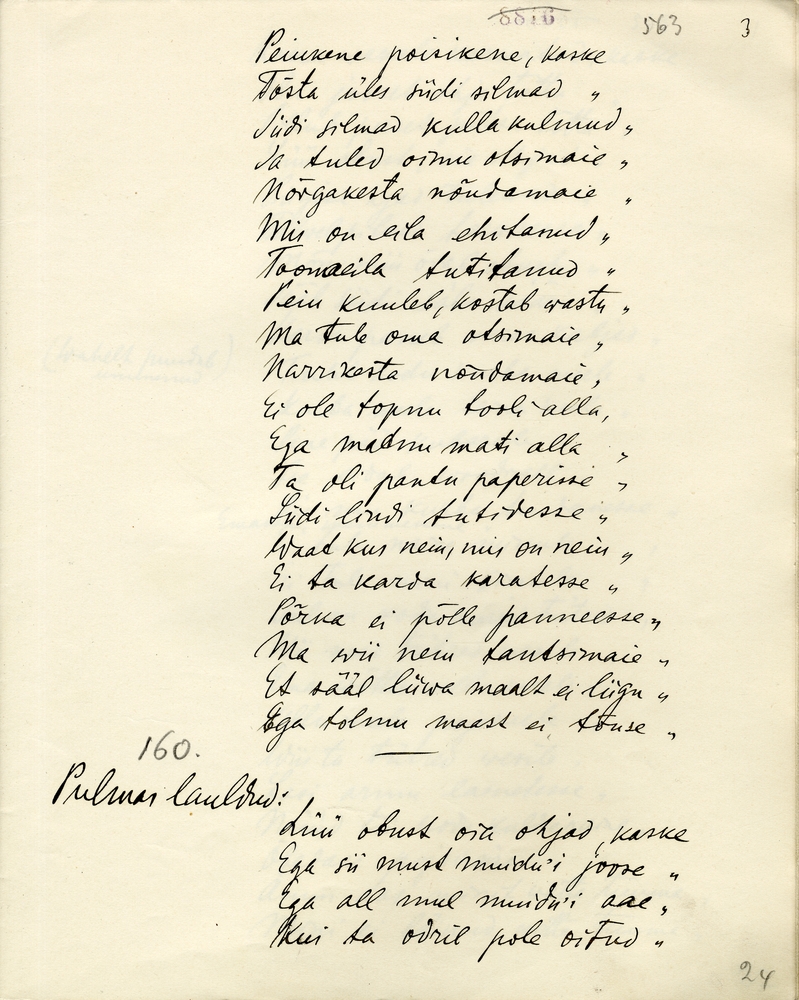 8816 563 3
Peiukene poisikene, kaske
Tõsta üles siidi silmad "
Siidi silmad kulla kulmud "
Ja tuled oimu otsimaie "
Nõrgakesta nõudamaie "
Mis on eila ehitanud "
Toonaeila tutitanud "
Peiu kuuleb, kostab wastu "
Ma tule oma otsimaie "
Narrikesta nõudamaie "
Ei ole topnu tooli alla,
Ega matnu mati alla "
Ta oli pantu paperisse "
Siidi lindi tutidesse "
Waat kus neiu, mis on neiu "
Ei ta karda karatesse "
Põrka ei põlle panneesse "
Ma wii neiu tantsimaie "
Et sääl liiwa maalt ei liigu "
Ega tolmu maast ei tõuse "
160.
Pulmas lauldud:
Lüü obust oia ohjad, kaske
Ega sii must muidu'i joose "
Ega all mul muidu'i aae "
Kui ta odril pole oitud "
24